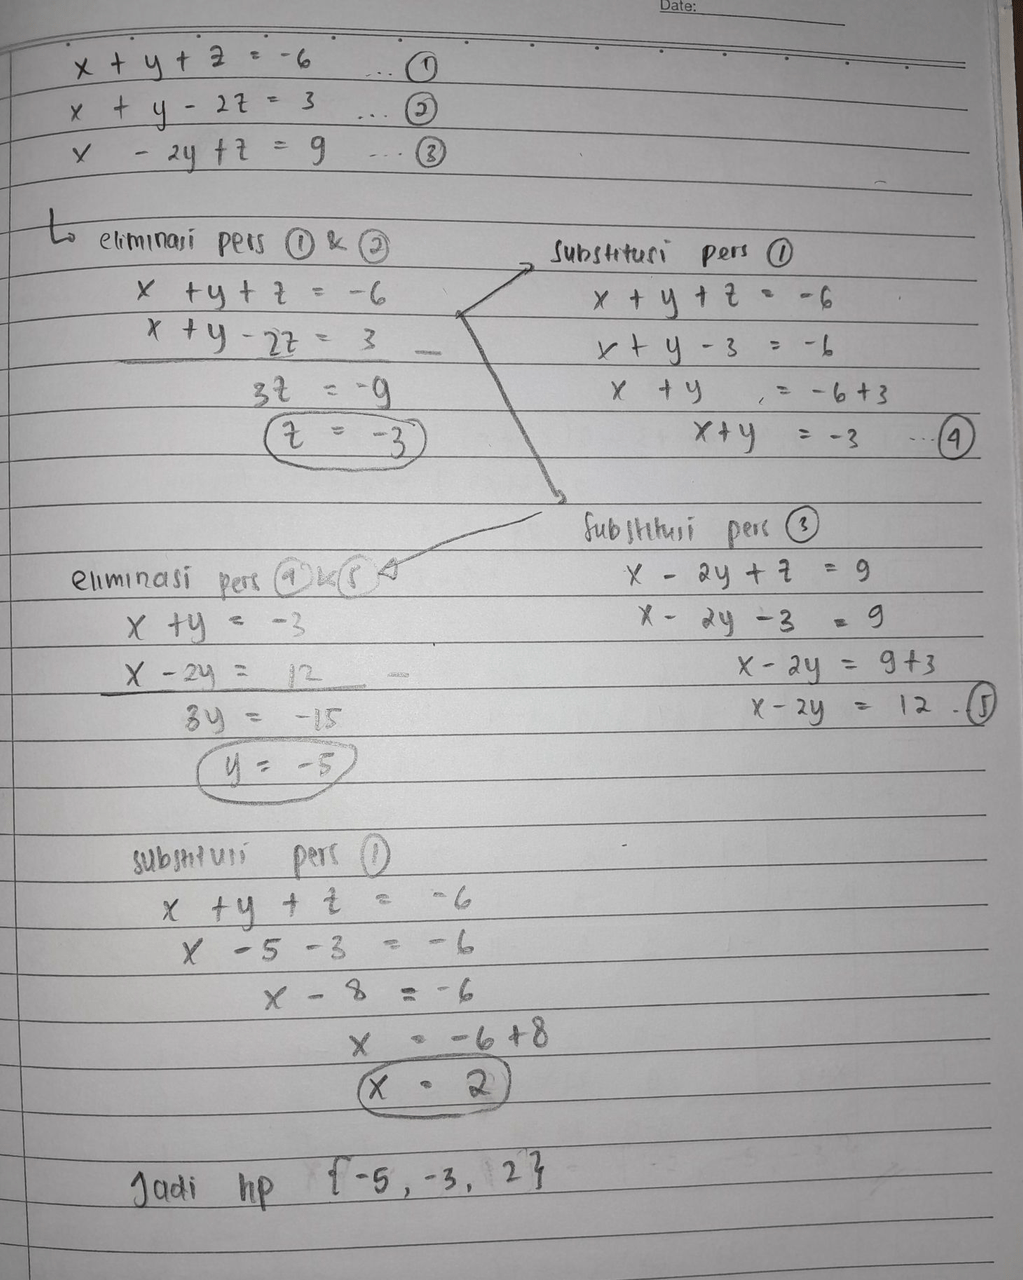 Date:
x + y + z = -6 ... ①
x + y - 2z = 3 ... ②
x - 2y + z = 9 ... ③
↳ eliminasi pers ① & ②
x + y + z = -6
x + y - 2z = 3 –
3z = -9
z = -3
substitusi pers ①
x + y + z = -6
x + y - 3 = -6
x + y = -6 + 3
x + y = -3 ... ④
substitusi pers ③
x - 2y + z = 9
x - 2y - 3 = 9
x - 2y = 9 + 3
x - 2y = 12 . ⑤
eliminasi pers ④ & ⑤
x + y = -3
x - 2y = 12 –
3y = -15
y = -5
substitusi pers ①
x + y + z = -6
x - 5 - 3 = -6
x - 8 = -6
x = -6 + 8
x = 2
Jadi hp {-5, -3, 2}